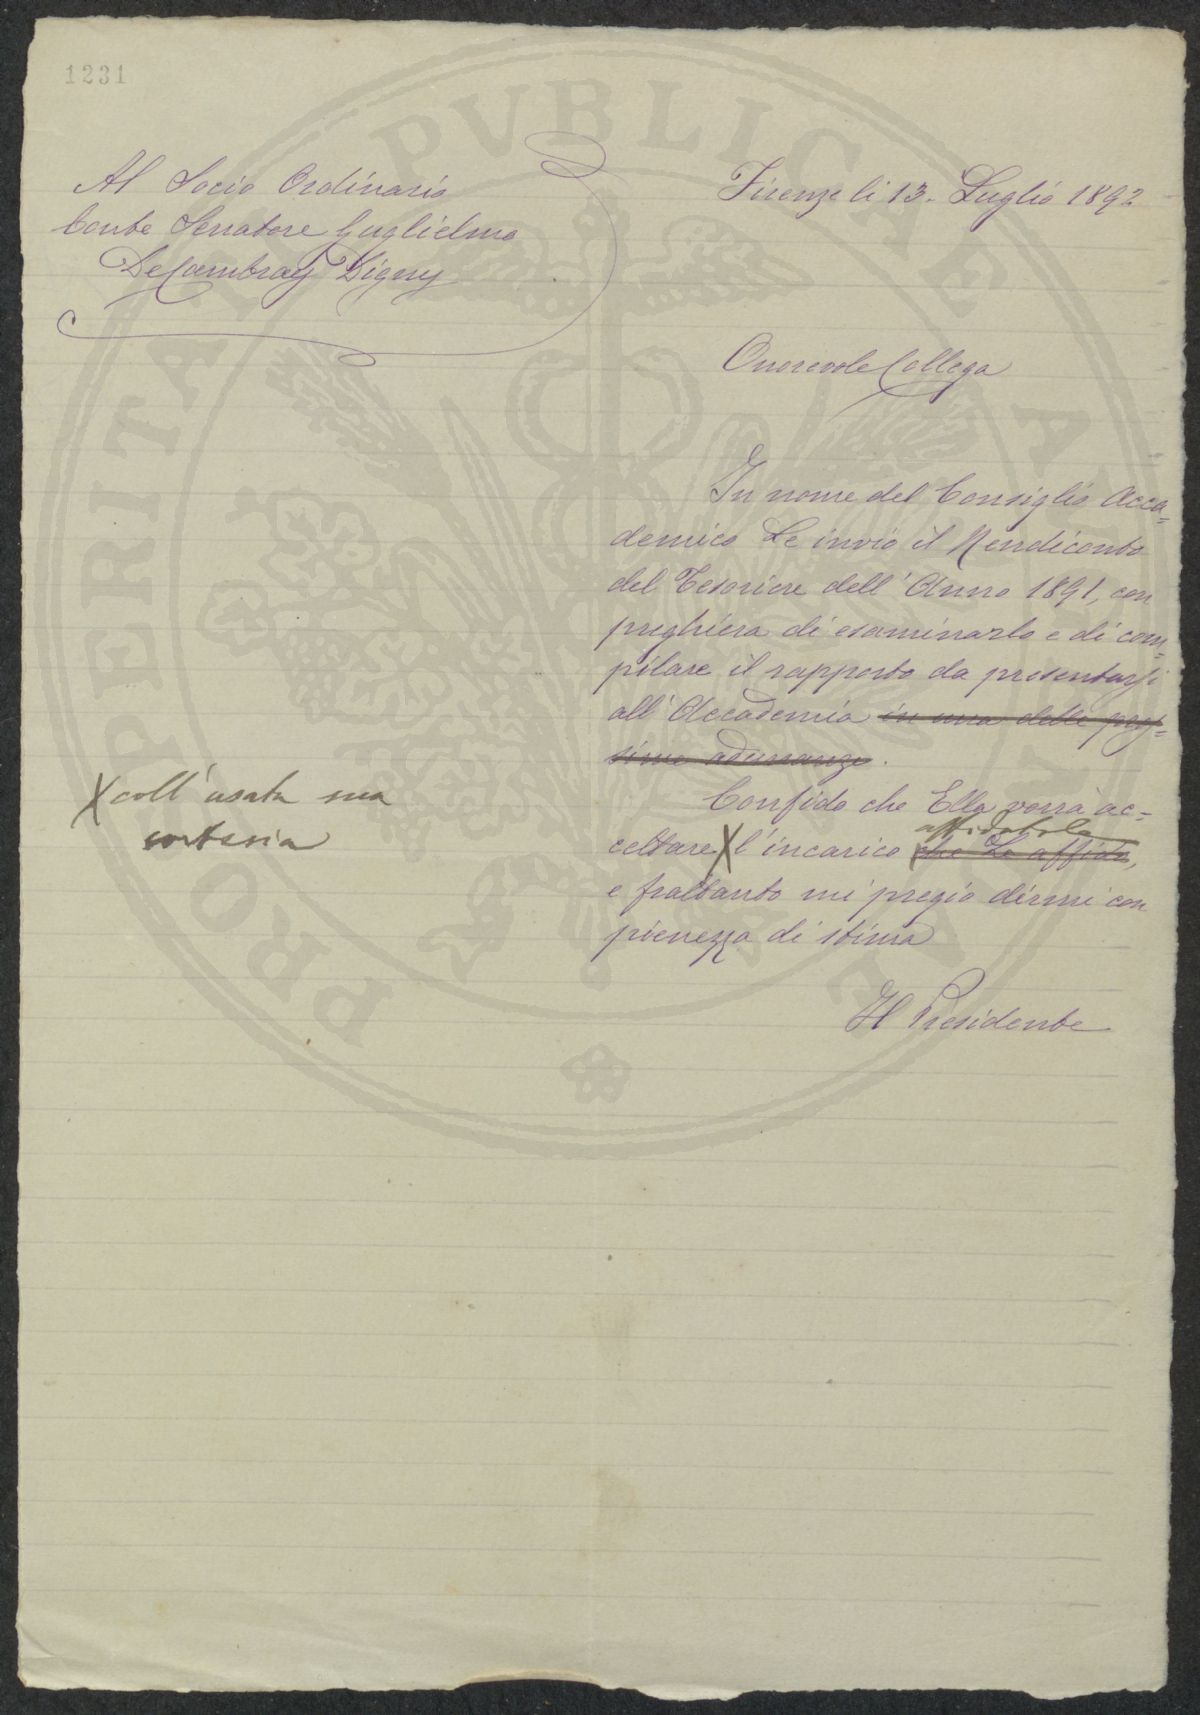 1231
Al Socio Ordinario
Conte Senatore Guglielmo
De Cambray Digny
Firenze li 13. Luglio 1892
Onorevole Collega
In nome del Consiglio Acca=
demico Le invio il Rendiconto
del Tesoriere dell'Anno 1891, con
preghiera di esaminarlo e di com=
pilare il rapporto da presentarsi
all'Accademia in una delle pros=
sime adunanze.
Confido che Ella vorrà ac=
affidatole
cettare X l'incarico che Le affido,
X coll'usata sua
cortesia
e frattanto mi pregio dirmi con
pienezza di stima
Il Presidente
PROSPERITATI PVBLICAE AVGENDAE